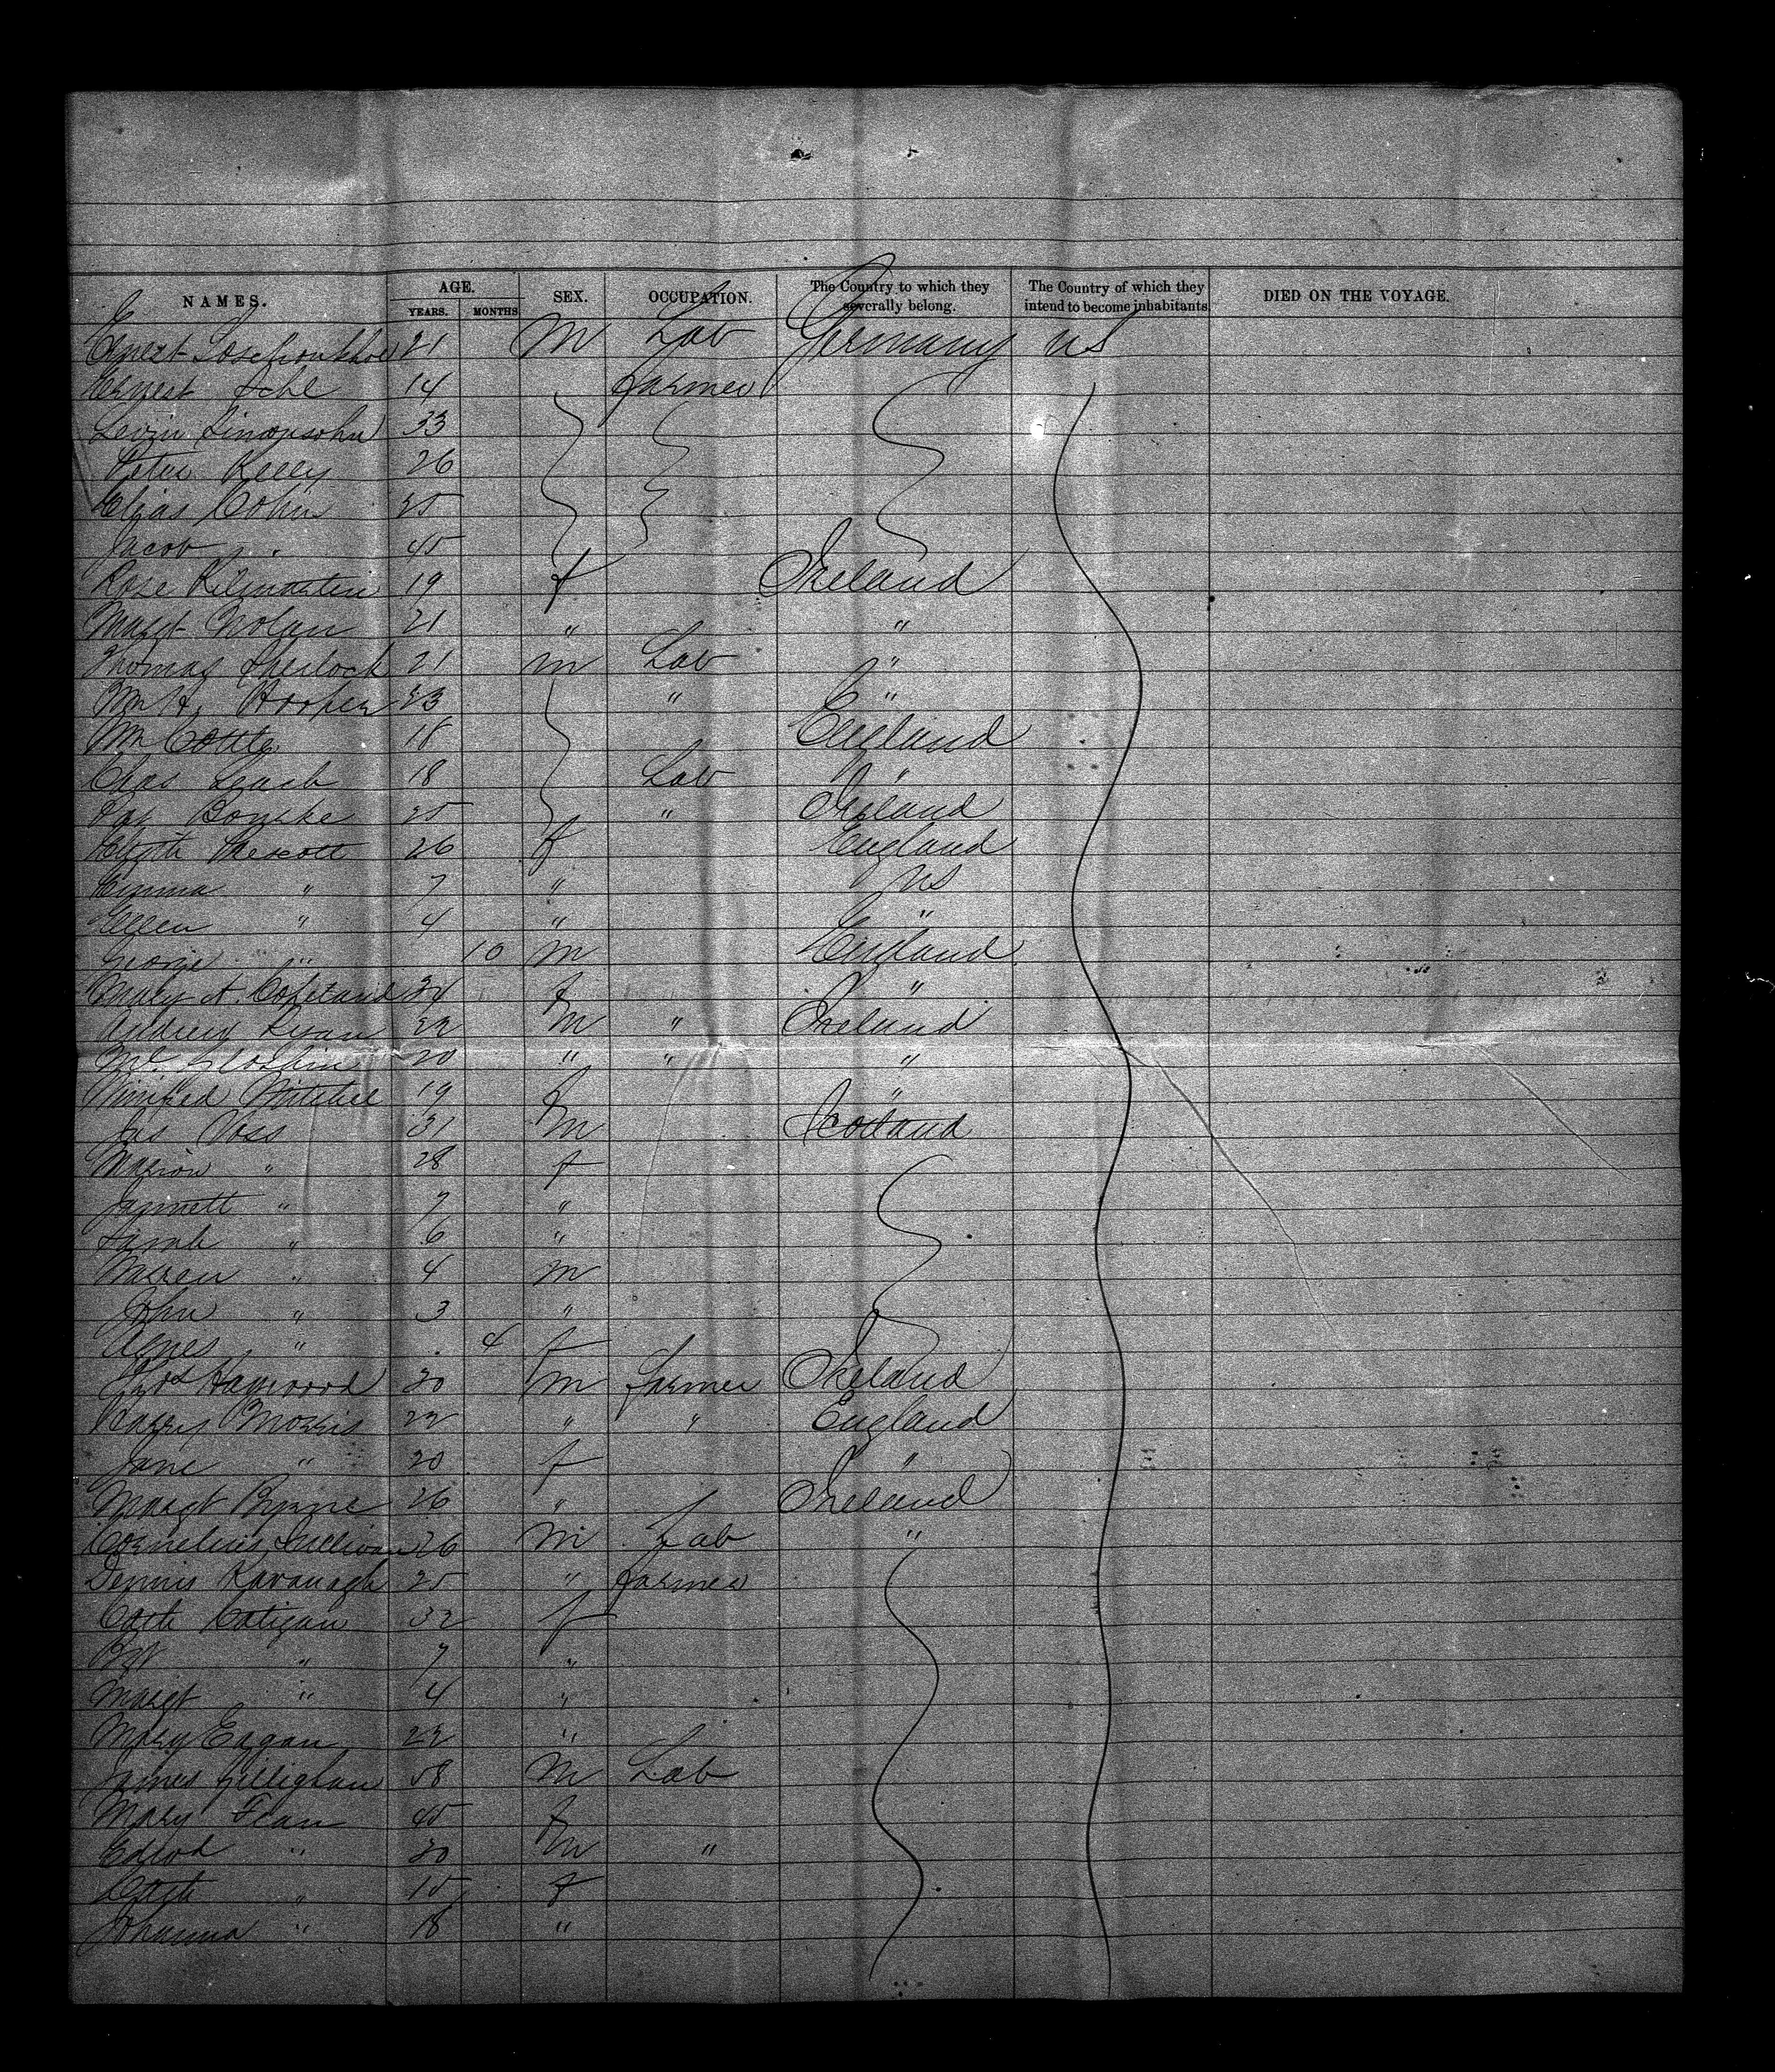 NAMES. AGE. SEX. OCCUPATION. The Country to which they severally belong. The Country of which they intend to become inhabitants DIED ON THE VOYAGE.
YEARS. MONTHS
Ernest 21 M Lab Germany US
Ernest 14 farmer
Levin 33
Peter Kelly 26
Elias Cohn 25
Jacob " 45
Rose Kilmartin 19 f Ireland
Margt Nolan 21 " "
Thomas Sherlock 21 m Lab "
Wm H. Hooper 23 " "
Wm Cottle 18 England
Chas Leach 18 Lab "
Pat Bourke 25 " Ireland
Elizth Prescott 26 f England
Emma " 7 " US
Ellen " 4 " "
George " 10 m England
Mary A. Copeland 24 f "
Andrew Ryan 22 m " Ireland
20 " " "
Winifred Mitchel 19 f "
Jas Voss 31 m Scotland
Marion " 28 f
Jannett " 7 "
Sarah " 6 "
" 4 m
John " 3 "
Agnes " 4 f
Haywood 20 m farmer Ireland
Harry Morris 22 " " England
Jane " 20 f "
Margt Byrne 26 " Ireland
Cornelius Sullivan 26 m Lab "
Dennis Kavanagh 25 " farmer
Cath Catigan 32 f
Bgt " 7 "
Margt " 4 "
Mary Eagan 22 "
James Gillighan 58 m Lab
Mary Flan 45 f
Edwd " 20 m "
Cath " 15 f
Johanna " 18 "